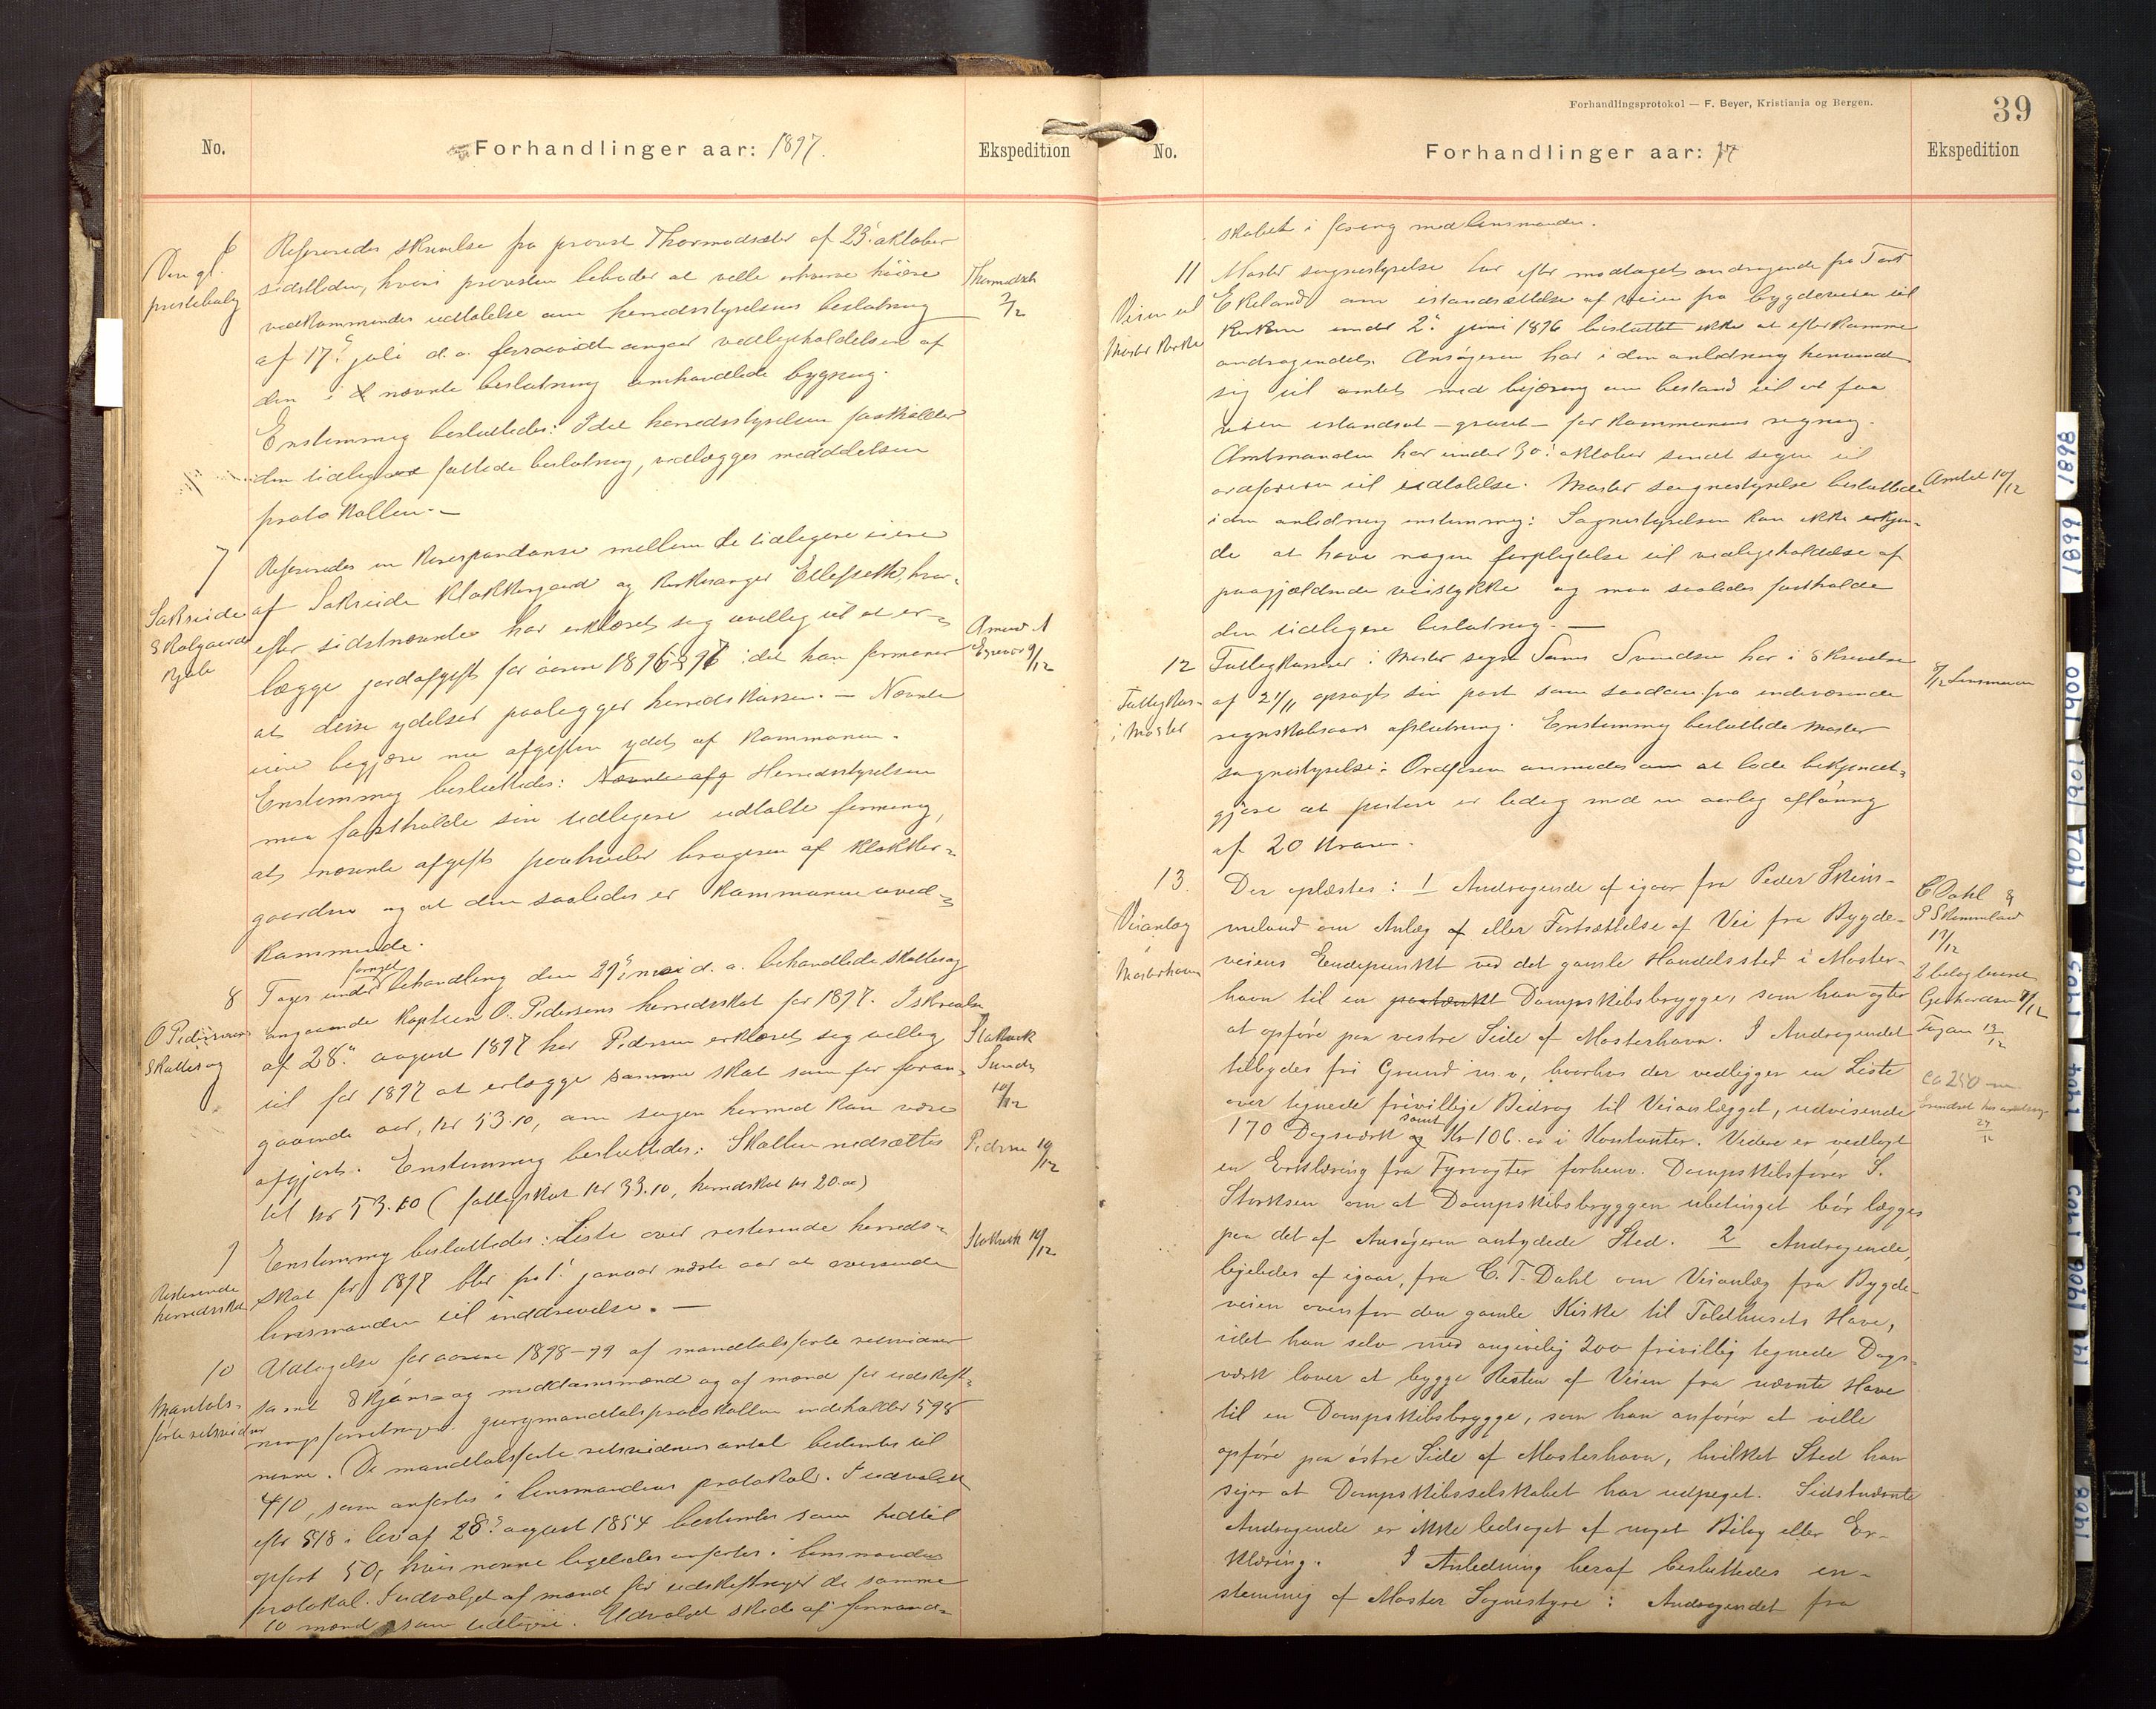 No.
Forhandlinger aar: 1897.
Ekspedition
6
Refereredes skrivelse fra provst Thormodsæter af 23' oktober
sidstleden, hvori provsten bebuder at ville erhverve høiere
vedkommendes udtalelse om herredsstyrelsens beslutning
af 17' juli d. a. forsaavidt angaar vedligeholdelsen af
den i nævnte beslutning omhandlede bygning.
Enstemmig besluttedes: Idet herredsstyrelsen fastholder
den tidligere fattede beslutning, vedlægges meddelelsen
protokollen. —
Den gl.
prestebolig
Thormodsæt
2/12
7
Refereredes en korrespondanse mellem de tidligere eiere
af Sakseide klokkergaard og kirkesanger Ellefseth, hvor-
efter sidstnævnte har erklæret sig uvillig til at er-
lægge jordafgift for aarene 1896 & 97 idet han formener
at disse ydelser paaligger herredskassen. — Nævnte
eiere begjære nu afgiften ydet af kommunen.
Enstemmig besluttedes: Nævnte afg Herredsstyrelsen
maa fastholde sin tidligere udtalte formening,
at nævnte afgift paahviler brugeren af klokker-
gaarden og at den saaledes er kommunen uved-
kommende.
Sakseide
8
Toges under fornyet behandling den 29' mai d. a. behandlede skattesag
angaaende kaptein O. Pedersens herredsskat for 1897. I skrivelse
af 28' august 1897 har Pedersen erklæret sig villig
til for 1897 at erlægge samme skat som for foran-
gaaende aar, kr 53.10, om sagen hermed kan være
afgjort. Enstemmig besluttedes: Skatten nedsættes
til kr 53.10 (fattigskat kr 33.10, herredskat kr 20.00)
O Pedersens
Skattesag
Pedersen 10/12
9
Enstemmig besluttedes: Liste over resterende herreds-
skat for 1897 blir pr 1' januar næste aar at oversende
lensmanden til inddrivelse. —
Resterende
herredsskat
10
Udtagelse for aarene 1898-99 af mandtalsførte retsvidner
samt skjøns- og meddomsmænd og af mænd for udskift-
ningsforretninger. Jurymandtalsprotokollen indeholder 598
navne. De mandtalsførte retsvidners antal bestemtes til
410, som anførtes i lensmandens protokol. I udvalget
efter §18 i lov af 28' august 1854 bestemtes som hidtil
opført 50, hvis navne ligeledes anførtes i lensmandens
protokol. I udvalget af mænd for udskiftninger de samme
10 mænd som tidligere. Udvalget skede af formand-
Mantals-
førte retsvidner
Forhandlingsprotokol — F. Beyer, Kristiania og Bergen.
39
No.
Forhandlinger aar: 97
Ekspedition
skabet i forening med lensmanden.
11
Moster sognestyrelse har efter modtaget andragende fra
Ekeland om istandsættelse af veien fra bygdeveien til
kirken under 2' juni 1896 besluttet ikke at efterkomme
andragendet. Ansøgeren har i den anledning henvendt
sig til amtet med begjæring om bistand til at faa
veien istandsat — gruset — for kommunens regning.
Amtmanden har under 30' oktober sendt sagen til
ordføreren til udtalelse. Moster sognestyrelse besluttede
i den anledning enstemmig: Sognestyrelsen kan ikke erkjen-
de at have nogen forpligtelse til vedligeholdelse af
paagjældende veistykke og maa saaledes fastholde
den tidligere beslutning. —
Veien til
Moster kirke
Amtet 10/12
12
Fattigkasserer i Moster sogn Svendsen har i skrivelse
af 21/11 opsagt sin post som saadan fra indeværende
regnskabsaars afslutning. Enstemmig besluttede Moster
sognestyrelse: Ordføreren anmodes om at lade bekjendt-
gjøre at posten er ledig med en aarlig afløning
af 20 kroner.
Fattigkas-
i Moster
13
Der oplæstes: 1 Andragende af igaar fra Peder Skim-
meland om Anlæg af eller Fortsættelse af Vei fra Bygde-
veiens Endepunkt ved det gamle Handelssted i Moster-
havn til en paatænkt Dampskibsbrygge, som han agter
at opføre paa vestre Side af Mosterhavn. I Andragendet
tilbydes fri Grund m.v, hvorhos der vedligger en Liste
over tegnede frivillige Bidrag til Veianlægget, udvisende
170 Dagsværk samt Kr 106.00 i Kontanter. Videre er vedlagt
en Erklæring fra Fyrvogter forhenv. Dampskibsfører S.
Storksen om at Dampskibsbryggen ubetinget bør lægges
paa det af Ansøgeren antydede Sted. 2 Andragende,
ligeledes af igaar, fra C. T. Dahl om Veianlæg fra Bygde-
veien ovenfor den gamle Kirke til Toldhusets Have,
idet han selv med angivelig 200 frivillig tegnede Dags-
værk lover at bygge Resten af Veien fra nævnte Have
til en Dampskibsbrygge, som han anfører at ville
opføre paa østre Side af Mosterhavn, hvilket Sted han
siger at Dampskibsselskabet har udpeget. Sidstnævnte
Andragende er ikke ledsaget af noget Bilag eller Er-
klæring. I Anledning heraf besluttedes en-
stemmig af Moster Sognestyre: Andragendet fra
Veianlæg
i
Mosterhavn
C Dahl &
P Skimmeland
ca 250 m
1898
1899
1900
1901
1902
1903
1904
1905
1906
1907
1908